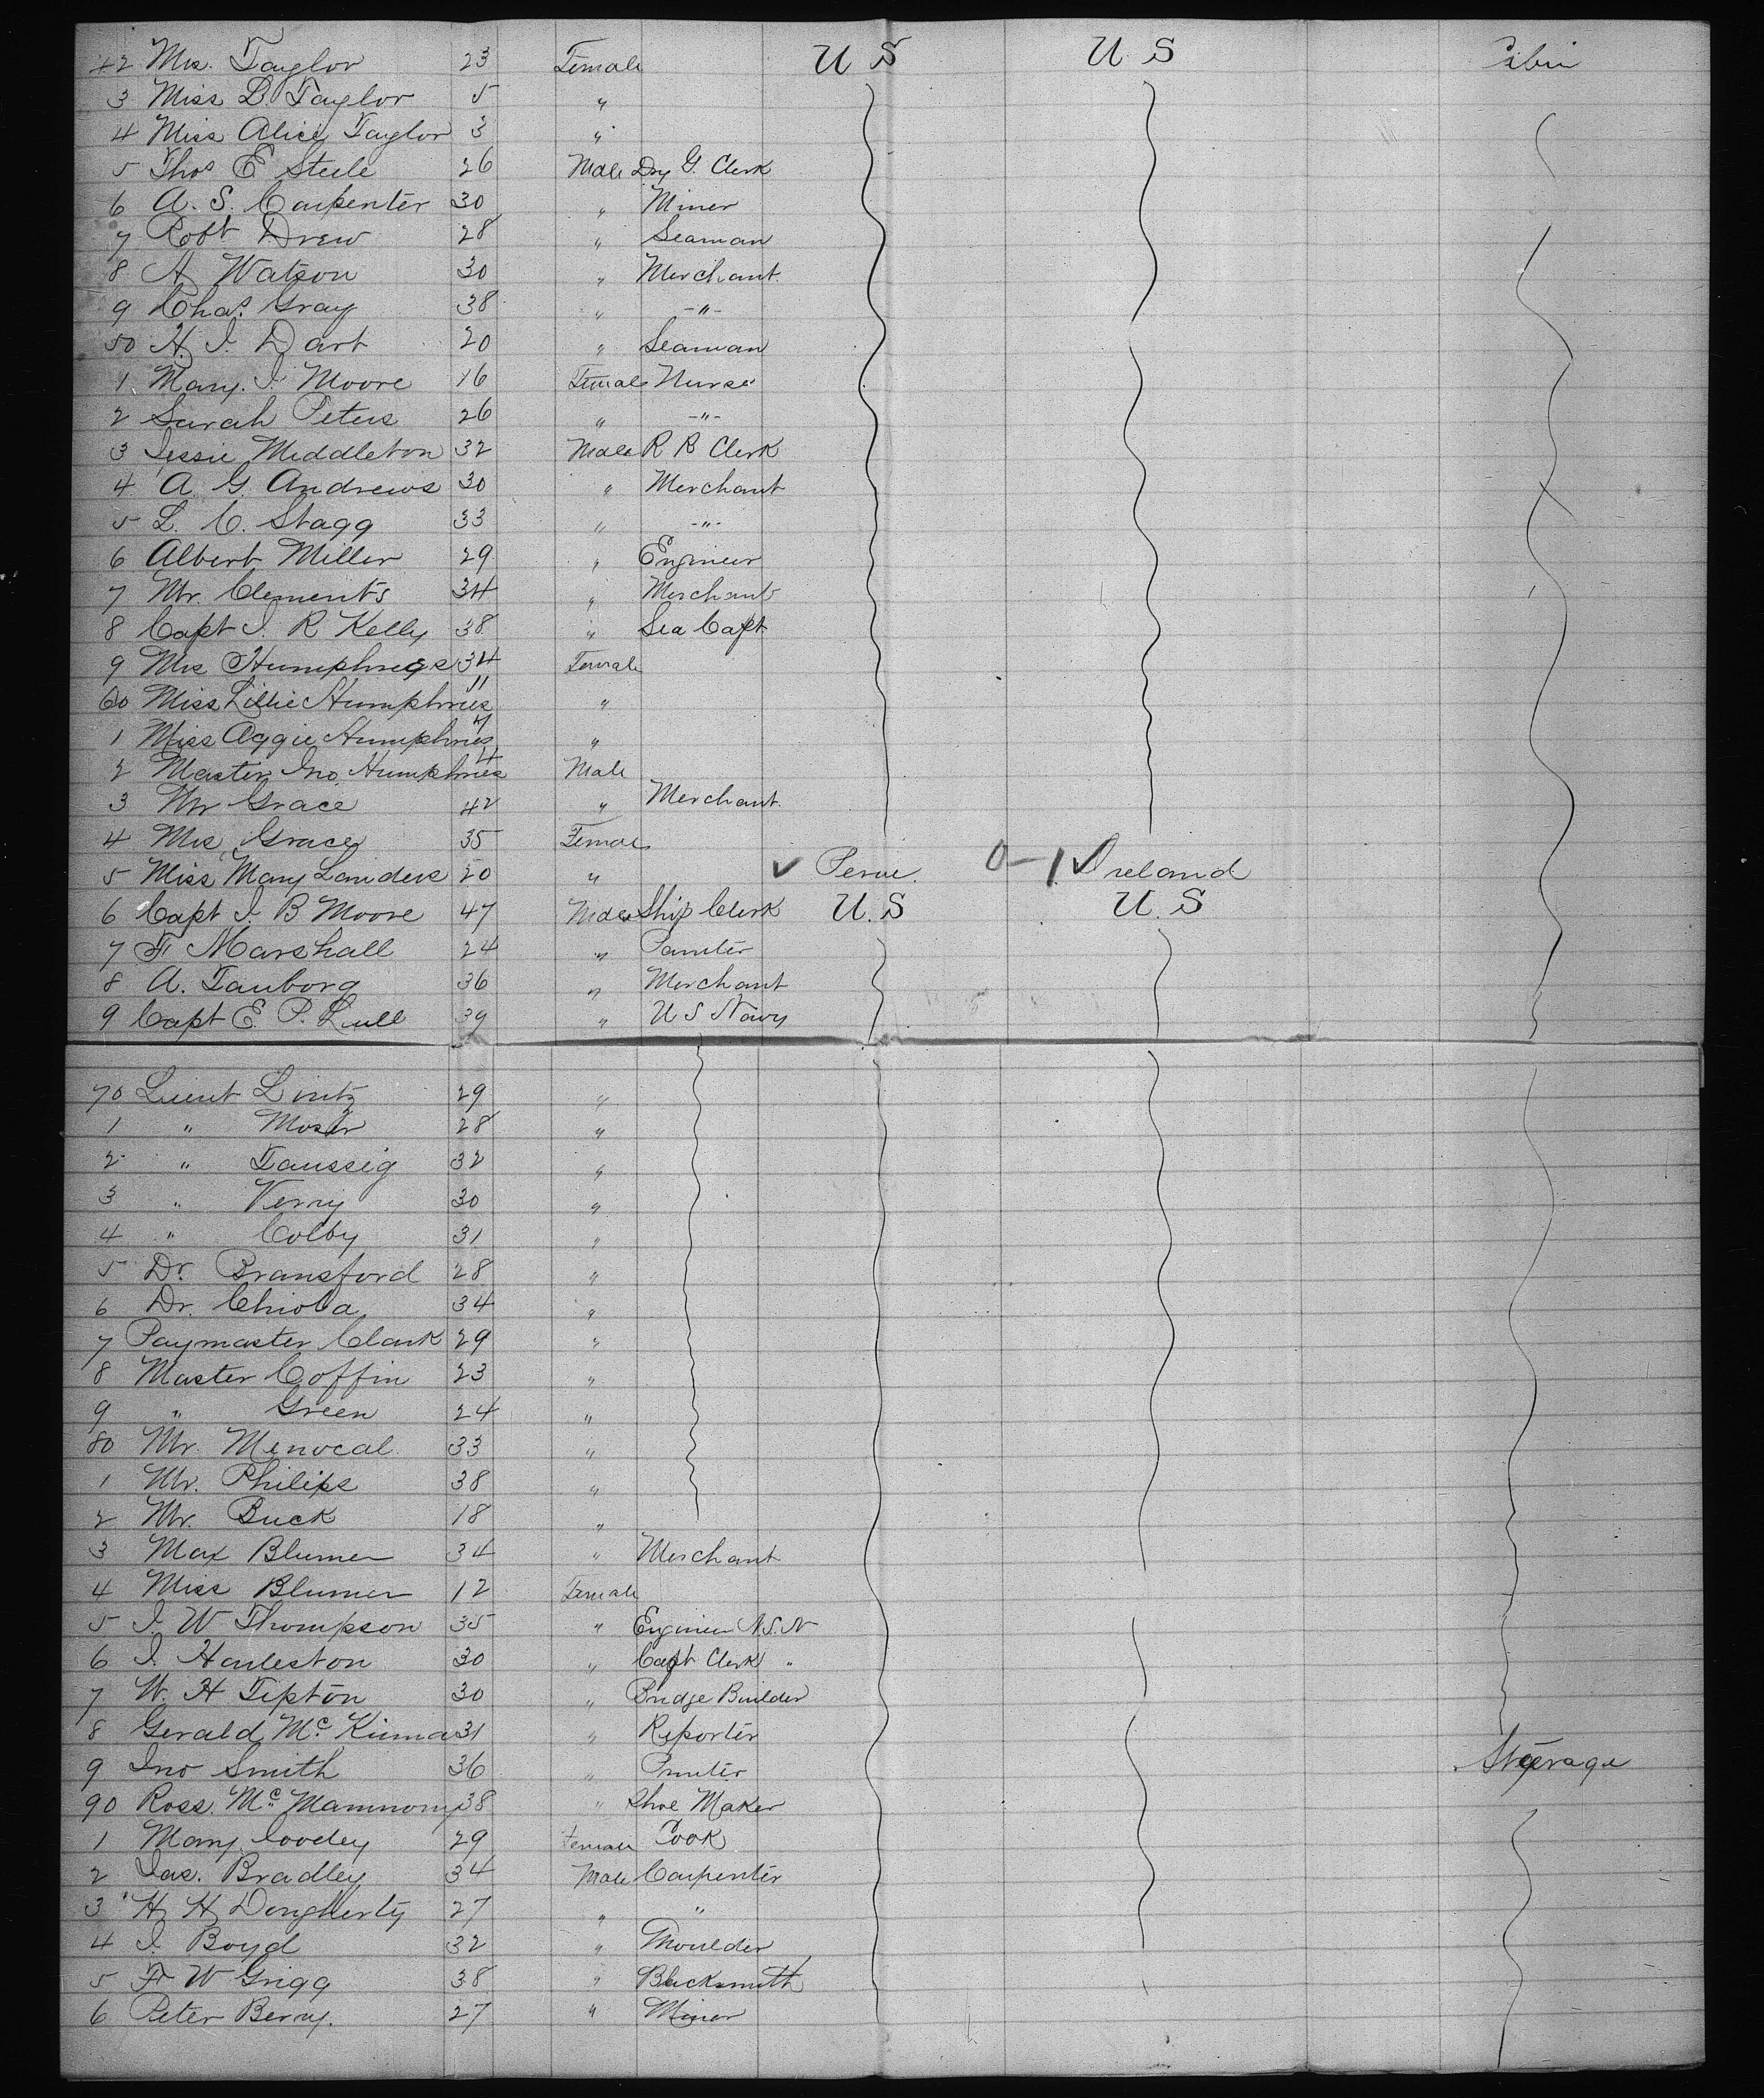 42 Mrs. Taylor 23 Female U S U S Cabin
3 Miss L. Taylor 5 "
4 Miss Alice Taylor 3 "
5 Thos E Steele 26 Male Dry G. Clerk
6 A. S. Carpenter 30 " Miner
7 Robt Drew 28 " Seaman
8 A Watson 30 " Merchant
9 Chas. Gray 38 " -"-
50 H. J. Dart 20 " Seaman
1 Mary. J. Moore 16 Female Nurse
2 Sarah Peters 26 " -"-
3 Jessie Middleton 32 Male R R Clerk
4 A. G. Andrews 30 " Merchant
5 L. C. Stagg 33 " -"-
6 Albert Miller 29 " Engineer
7 Mr. Clements 34 " Merchant
8 Capt J. R Kelly 38 " Sea Capt
9 Mrs Humphreys 34 Female
60 Miss Lillie Humphries 11 "
1 Miss Aggie Humphries 7 "
2 Master Jno. Humphries 4 Male
3 Mr Grace 42 " Merchant
4 Mrs Grace 35 Female
5 Miss Mary Landers 20 " Perue. 0-1 Ireland
6 Capt J. B Moore 47 Male Ship Clerk U. S U. S
7 F Marshall 24 " Painter
8 A. Tauborg 36 " Merchant
9 Capt E. P. Lull 39 " U S Navy
70 Lieut Lintz 29 "
1 " Moser 28 "
2 " Taussig 32 "
3 " Verry 30 "
4 " Colby 31 "
5 Dr. Bransford 28 "
6 Dr. 34 "
7 Paymaster Clark 29 "
8 Master Coffin 23 "
9 " Green 24 "
80 Mr. Menocal 33 "
1 Mr. Philips 38 "
2 Mr. Buck 18 "
3 Max Blumer 34 " Merchant
4 Miss Blumer 12 Female
5 J. W Thompson 35 " Engineer N.S.N
6 J. Harleston 30 " Capt Clerk "
7 W. H Tipton 30 " Bridge Builder
8 Gerald Mc 31 " Reporter
9 Jno Smith 36 " Printer Steerage
90 Ross. Mc 38 " Shoe Maker
1 Mary 29 Female Cook
2 Jas. Bradley 34 Male Carpenter
3 H H Dougherty 27 " "
4 J. Boyd 32 " Moulder
5 F W Grigg 38 " Blacksmith
6 Peter Berry. 27 " Miner